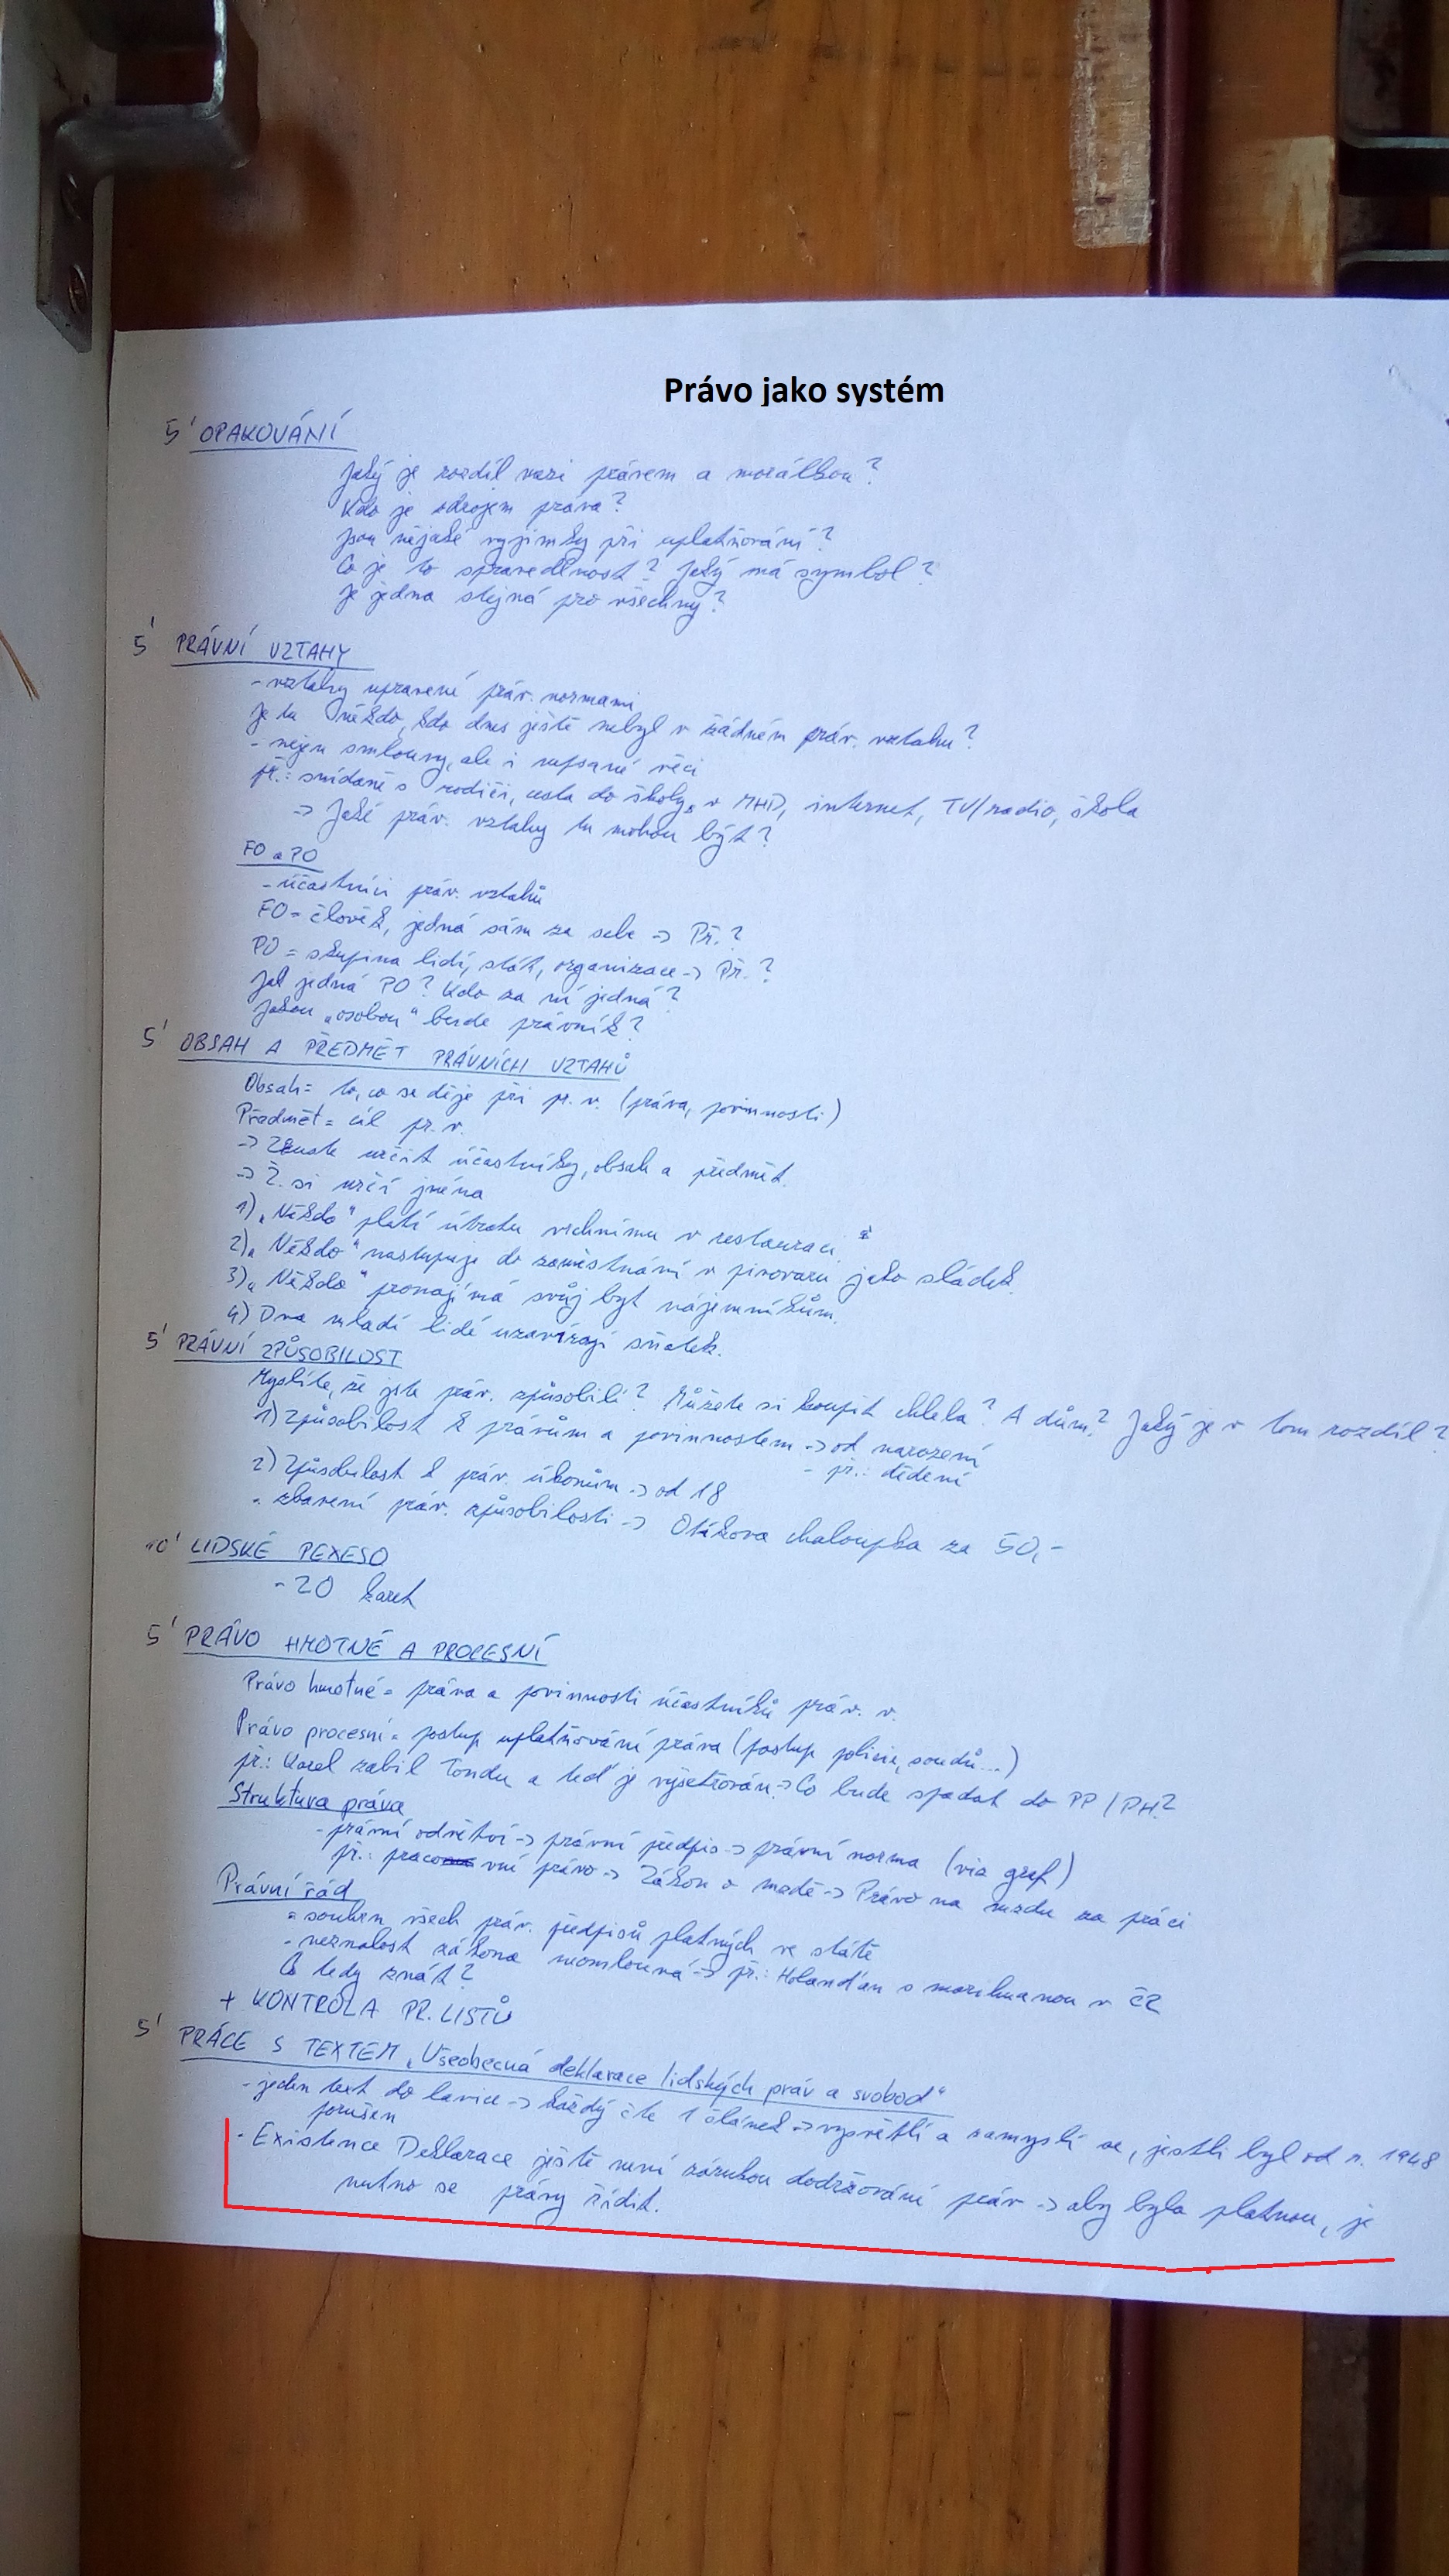 Právo jako systém
5' OPAKOVÁNÍ
Jaký je rozdíl mezi právem a morálkou?
Kdo je zdrojem práva?
Jsou nějaké vyjímky při uplatňování?
Co je to spravedlnost? Jaký má symbol?
Je jedna stejná pro všechny?
5' PRÁVNÍ VZTAHY
- vztahy upravené práv. normami
Je tu někdo, kdo dnes ještě nebyl v žádném práv. vztahu?
- nejen smlouvy, ale i nepsané věci
př.: snídaně s rodiči, cesta do školy, v MHD, internet, TV/radio, škola
=> Jaké práv. vztahy tu mohou být?
FO a PO
- účastníci práv. vztahů
FO = člověk, jedná sám za sebe -> Př.?
PO = skupina lidí, stát, organizace -> Př.?
Jak jedná PO? Kdo za ni jedná?
Jakou „osobou" bude právník?
5' OBSAH A PŘEDMĚT PRÁVNÍCH VZTAHŮ
Obsah = to, co se děje při pr. v. (práva, povinnosti)
Předmět = cíl pr. v.
-> Zkuste určit účastníky, obsah a předmět.
-> Ž. si určí jména
1) „Někdo" platí útratu vrchnímu v restauraci
2) „Někdo" nastupuje do zaměstnání v pivovaru jako sládek.
3) „Někdo" pronajímá svůj byt nájemníkům.
4) Dva mladí lidé uzavírají sňatek.
5' PRÁVNÍ ZPŮSOBILOST
Myslíte, že jste práv. způsobilí? Můžete si koupit chleba? A dům? Jaký je v tom rozdíl?
1) způsobilost k právům a povinnostem -> od narození
- př.: dědění
2) způsobilost k práv. úkonům -> od 18
- zbavení práv. způsobilosti -> Otíkova chaloupka za 50,-
10' LIDSKÉ PEXESO
- 20 karet
5' PRÁVO HMOTNÉ A PROCESNÍ
Právo hmotné = práva a povinnosti účastníků práv. v.
Právo procesní = postup uplatňování práva (postup policie, soudů...)
př.: Karel zabil Tondu a teď je vyšetřován -> Co bude spadat do PP/PH?
Struktura práva
- právní odvětví -> právní předpis -> právní norma (viz graf)
př.: pracovní právo -> Zákon o mzdě -> Právo na mzdu za práci
Právní řád
= souhrn všech práv. předpisů platných ve státě
- neznalost zákona neomlouvá -> př.: Holanďan s marihuanou v ČR
Co tedy znát?
+ KONTROLA PR. LISTŮ
5' PRÁCE S TEXTEM „Všeobecná deklarace lidských práv a svobod"
- jeden text do lavice -> každý čte 1 článek -> vysvětlí a zamyslí se, jestli byl od r. 1948
porušen
- Existence Deklarace ještě není zárukou dodržování práv -> aby byla platnou, je
nutno se právy řídit.